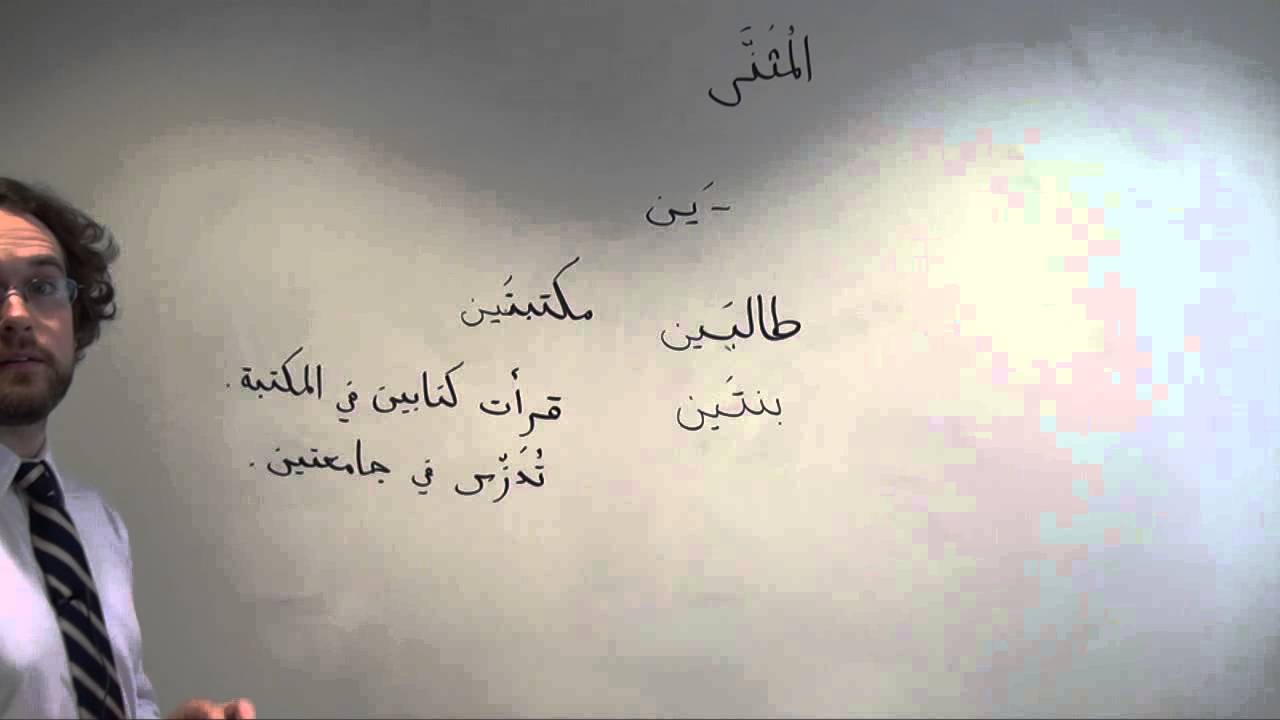 المُثَنَّى
- َين
طالبَين مكتبتَين
بنتَين
قرأت كتابين في المكتبة.
تُدَرِّس في جامعتين.